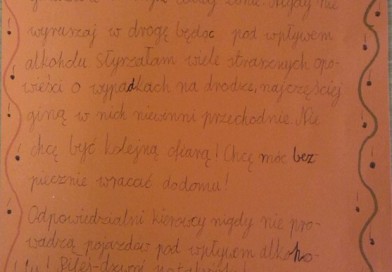 Nigdy nie
wyruszaj w drogę będąc pod wpływem
alkoholu słyszałam wiele strasznych opo-
wieści o wypadkach na drodze, najczęściej
giną w nich niewinni przechodnie. Nie
chcę być kolejną ofiarą! Chcę móc bez
piecznie wracać dodomu!
Odpowiedzialni kierowcy nigdy nie pro-
wadzą pojazdów pod wpływem alkoho-
lu! Piłeś